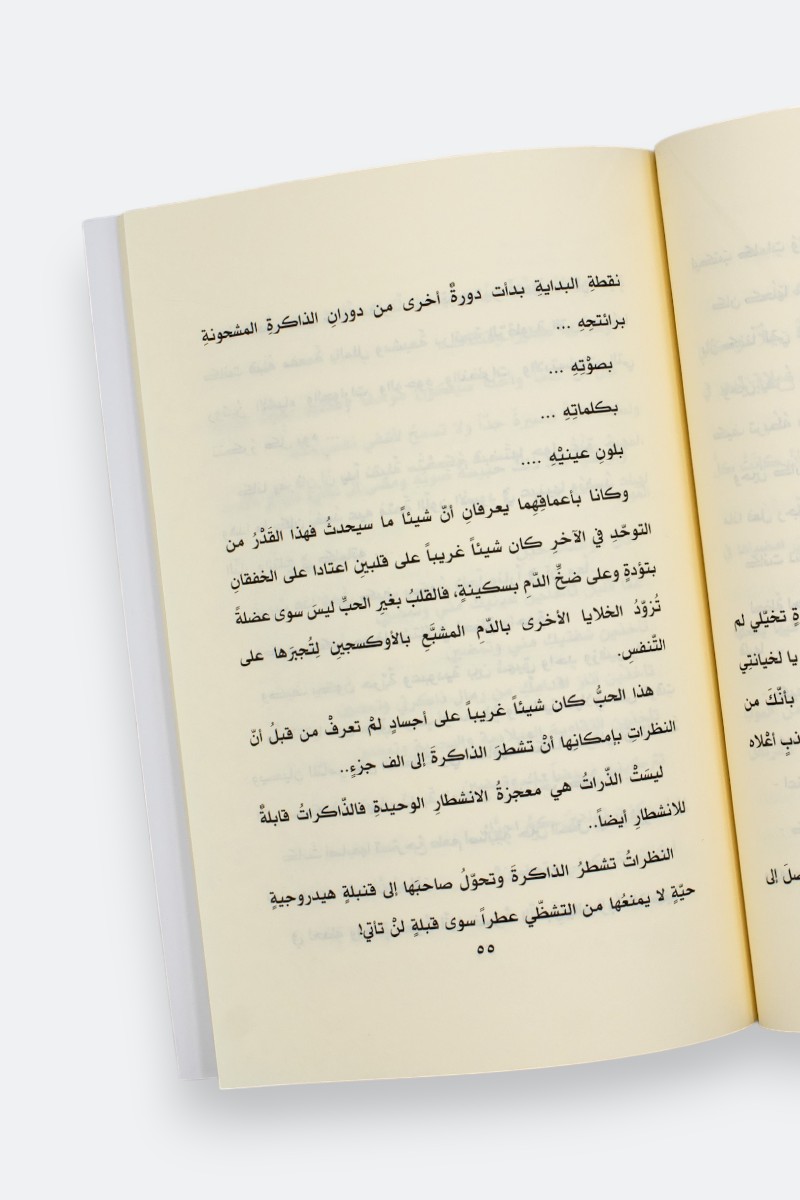 نقطةِ البدايةِ بدأت دورةٌ أخرى من دورانِ الذاكرةِ المشحونةِ
برائتحِهِ ...
بصوْتِهِ ...
بكلماتِهِ ...
بلونِ عينيْهِ ....
وكانا بأعماقِهِما يعرفانِ أنّ شيئاً ما سيحدثُ فهذا القَدْرُ من
التوحّدِ في الآخرِ كان شيئاً غريباً على قلبينِ اعتادا على الخفقانِ
بتؤدةٍ وعلى ضخِّ الدّمِ بسكينةٍ، فالقلبُ بغيرِ الحبِّ ليسَ سوى عضلةً
تُزوّدُ الخلايا الأخرى بالدّمِ المشبَّعِ بالأوكسجينِ لِتُجبرَها على
التّنفسِ.
هذا الحبُّ كان شيئاً غريباً على أجسادٍ لمْ تعرفْ من قبلُ أنّ
النظراتِ بإمكانِها أنْ تشطرَ الذاكرةَ إلى الف جزءٍ..
ليسَتْ الذّراتُ هي معجزةُ الانشطارِ الوحيدةِ فالذّاكراتُ قابلةٌ
للانشطارِ أيضاً..
النظراتُ تشطرُ الذاكرةَ وتحوّلُ صاحبَها إلى قنبلةٍ هيدروجيةٍ
حيّةٍ لا يمنعُها من التشظّي عطراً سوى قبلةٍ لنْ تأتي!
٥٥
تخيّلي لم
يا لخيانتِي
بأنّكَ من
أعْلاه
إلى